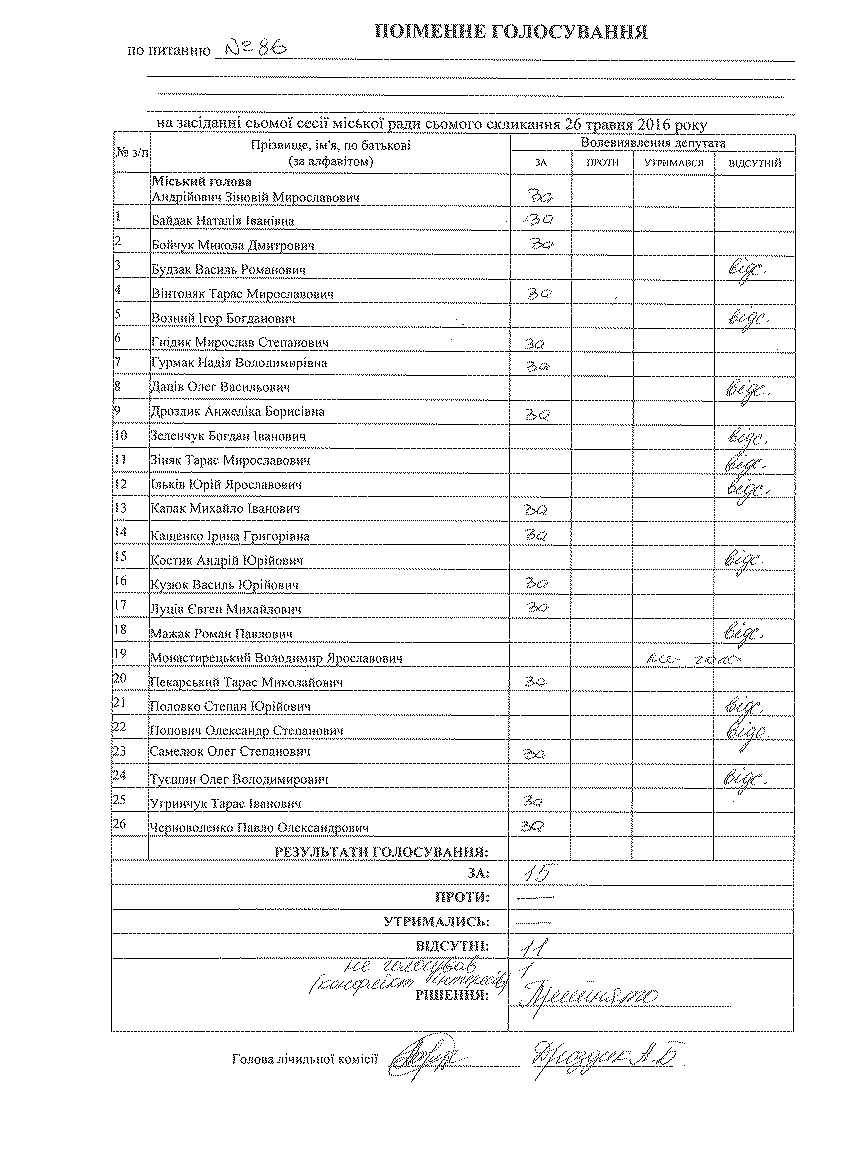 ПОІМЕННЕ ГОЛОСУВАННЯ
по питанню №86
на засіданні сьомої сесії міської ради сьомого скликання 26 травня 2016 року
№ з/п Прізвище, ім'я, по батькові (за алфавітом) Волевиявлення депутата
ЗА ПРОТИ УТРИМАВСЯ ВІДСУТНІЙ
Міський голова
Андрійович Зіновій Мирославович за
1 Байдак Наталія Іванівна за
2 Бойчук Микола Дмитрович за
3 Будзак Василь Романович відс.
4 Вінтоняк Тарас Мирославович за
5 Возний Ігор Богданович відс.
6 Гнідик Мирослав Степанович за
7 Гурмак Надія Володимирівна за
8 Даців Олег Васильович відс.
9 Дроздик Анжеліка Борисівна за
10 Зеленчук Богдан Іванович відс.
11 Зіняк Тарас Мирославович відс.
12 Ільків Юрій Ярославович відс.
13 Капак Михайло Іванович за
14 Кащенко Ірина Григорівна за
15 Костик Андрій Юрійович відс.
16 Кузюк Василь Юрійович за
17 Луців Євген Михайлович за
18 Мажак Роман Павлович відс.
19 Монастирецький Володимир Ярославович не голос.
20 Пекарський Тарас Миколайович за
21 Половко Степан Юрійович відс.
22 Попович Олександр Степанович відс.
23 Самелюк Олег Степанович за
24 Туєшин Олег Володимирович відс.
25 Угринчук Тарас Іванович за
26 Черноволенко Павло Олександрович за
РЕЗУЛЬТАТИ ГОЛОСУВАННЯ:
ЗА: 15
ПРОТИ: —
УТРИМАЛИСЬ: —
ВІДСУТНІ: 11
не голосував 1
(конфлікт інтересів)
РІШЕННЯ: Прийнято
Голова лічильної комісії Дроздик А.Б.